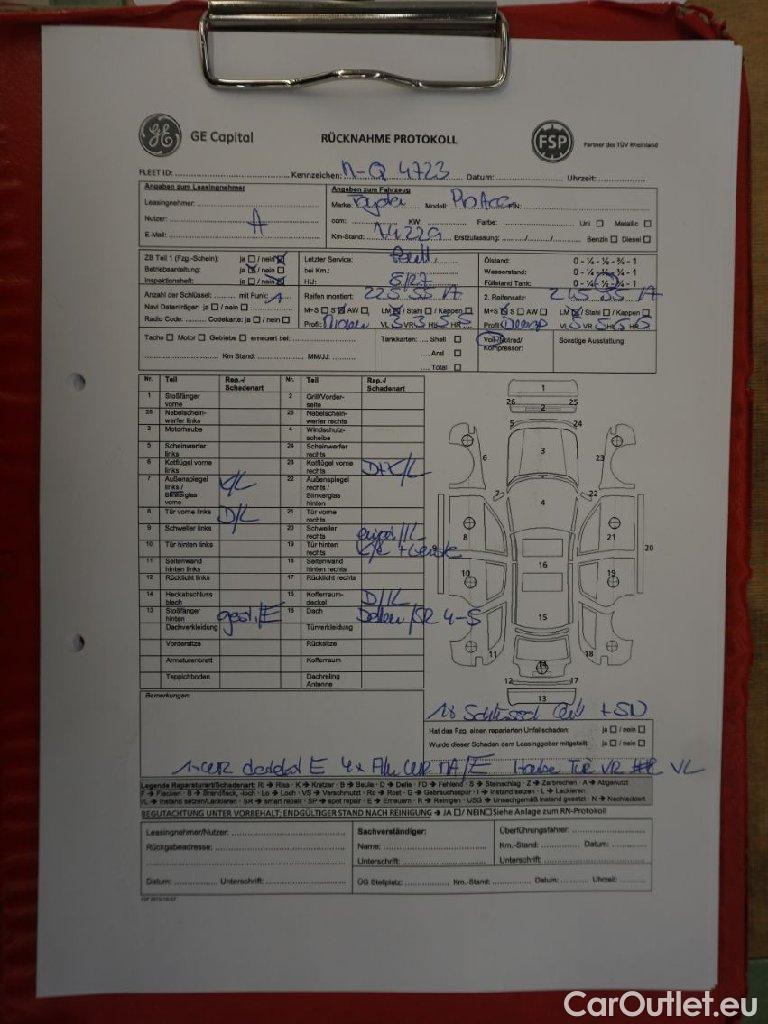 GE Capital RÜCKNAHME PROTOKOLL FSP Partner des TÜV Rheinland
FLEET ID: Kennzeichen: N-Q 4723 Datum: Uhrzeit:
Angaben zum Leasingnehmer
Leasingnehmer:
Nutzer: A
E-Mail:
Angaben zum Fahrzeug
Marke: Toyota Modell:
ccm: KW: Farbe: Uni Metallic
Km-Stand: Erstzulassung: Benzin Diesel
ZB Teil 1 (Fzg.-Schein): ja / nein
Betriebsanleitung: ja / nein
Inspektionsheft: ja / nein
Letzter Service:
bei Km.:
HU: 8/27
Ölstand: 0 - ¼ - ½ - ¾ - 1
Wasserstand: 0 - ¼ - ½ - ¾ - 1
Füllstand Tank: 0 - ¼ - ½ - ¾ - 1
Anzahl der Schlüssel: mit Funk: 1
Navi Datenträger: ja / nein
Radio Code: Codekarte: ja / nein
Reifen montiert: 225 55 17
M+S S AW LM / Stahl / Kappen
Profil: VL 3 VR 3 HL 3 HR 3
2. Reifensatz: 215 55 17
M+S S AW LM / Stahl / Kappen
Profil: VL 5 VR 5 HL 5 HR 5
Tacho Motor Getriebe erneuert bei:
Km Stand: MM/JJ:
Tankkarten: Shell
Aral
Total
Voll-/Notrad/
Kompressor:
Sonstige Ausstattung:
Nr. Teil Rep.-/ Schadenart Nr. Teil Rep.-/ Schadenart
1 Stoßfänger vorne 2 Grill/Vorderseite
26 Nebelscheinwerfer links 25 Nebelscheinwerfer rechts
3 Motorhaube 4 Windschutzscheibe
5 Scheinwerfer links 24 Scheinwerfer rechts
6 Kotflügel vorne links 23 Kotflügel vorne rechts D+K/L
7 Außenspiegel links / Blinkerglas vorne K/L 22 Außenspiegel rechts / Blinkerglas hinten
8 Tür vorne links D/L 21 Tür vorne rechts
9 Schweller links 20 Schweller rechts
10 Tür hinten links 19 Tür hinten rechts
11 Seitenwand hinten links 18 Seitenwand hinten rechts
12 Rücklicht links 17 Rücklicht rechts
14 Heckabschlussblech 15 Kofferraumdeckel D/L
13 Stoßfänger hinten 16 Dach Dellen/SR 4-5
Dachverkleidung Türverkleidung
Vordersitze Rücksitze
Armaturenbrett Kofferraum
Teppichboden Dachreling Antenne
1
26 2 25
5 24
6 3 23
7 22
4
8 21
9 20
16
10 19
15
11 18
14
12 17
13
Bemerkungen:
Hat das Fzg. einen reparierten Unfallschaden: ja / nein
Wurde dieser Schaden dem Leasinggeber mitgeteilt: ja / nein
Legende Reparaturart/Schadenart: Ri → Riss - K → Kratzer - B → Beule - D → Delle - FD → Fehlend - S → Steinschlag - Z → Zerbrochen - A → Abgenutzt
F → Flecken - B → Brandfleck, -loch - Lo → Loch - VS → Verschmutzt - Ro → Rost - G → Gebrauchsspur - I → Instandsetzen - L → Lackieren
IL → Instand setzen/Lackieren - SR → smart repair - SP → spot repair - E → Erneuern - R → Reinigen - USG → Unsachgemäß instand gesetzt - N → Nachlackiert
BEGUTACHTUNG UNTER VORBEHALT; ENDGÜLTIGER STAND NACH REINIGUNG → JA / NEIN Siehe Anlage zum RN-Protokoll
Leasingnehmer/Nutzer:
Rückgabeadresse:
Datum: Unterschrift:
Sachverständiger:
Name:
Unterschrift:
Überführungsfahrer:
Km.-Stand: Datum:
Unterschrift
ÜG Stellplatz: Km.-Stand: Datum: Uhrzeit:
CarOutlet.eu